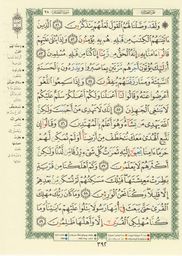 ۞ وَلَقَدْ وَصَّلْنَا لَهُمُ الْقَوْلَ لَعَلَّهُمْ يَتَذَكَّرُونَ ٥١ الَّذِينَ
آتَيْنَاهُمُ الْكِتَابَ مِن قَبْلِهِ هُم بِهِ يُؤْمِنُونَ ٥٢ وَإِذَا يُتْلَىٰ عَلَيْهِمْ
قَالُوا آمَنَّا بِهِ إِنَّهُ الْحَقُّ مِن رَّبِّنَا إِنَّا كُنَّا مِن قَبْلِهِ مُسْلِمِينَ ٥٣
أُولَٰئِكَ يُؤْتَوْنَ أَجْرَهُم مَّرَّتَيْنِ بِمَا صَبَرُوا وَيَدْرَءُونَ بِالْحَسَنَةِ
السَّيِّئَةَ وَمِمَّا رَزَقْنَاهُمْ يُنفِقُونَ ٥٤ وَإِذَا سَمِعُوا اللَّغْوَ
أَعْرَضُوا عَنْهُ وَقَالُوا لَنَا أَعْمَالُنَا وَلَكُمْ أَعْمَالُكُمْ سَلَامٌ
عَلَيْكُمْ لَا نَبْتَغِي الْجَاهِلِينَ ٥٥ إِنَّكَ لَا تَهْدِي مَنْ أَحْبَبْتَ
وَلَٰكِنَّ اللَّهَ يَهْدِي مَن يَشَاءُ وَهُوَ أَعْلَمُ بِالْمُهْتَدِينَ ٥٦
وَقَالُوا إِن نَّتَّبِعِ الْهُدَىٰ مَعَكَ نُتَخَطَّفْ مِنْ أَرْضِنَا أَوَلَمْ نُمَكِّن لَّهُمْ
حَرَمًا آمِنًا يُجْبَىٰ إِلَيْهِ ثَمَرَاتُ كُلِّ شَيْءٍ رِّزْقًا مِّن لَّدُنَّا وَلَٰكِنَّ
أَكْثَرَهُمْ لَا يَعْلَمُونَ ٥٧ وَكَمْ أَهْلَكْنَا مِن قَرْيَةٍ
بَطِرَتْ مَعِيشَتَهَا فَتِلْكَ مَسَاكِنُهُمْ لَمْ تُسْكَن مِّن بَعْدِهِمْ
إِلَّا قَلِيلًا وَكُنَّا نَحْنُ الْوَارِثِينَ ٥٨ وَمَا كَانَ رَبُّكَ مُهْلِكَ
الْقُرَىٰ حَتَّىٰ يَبْعَثَ فِي أُمِّهَا رَسُولًا يَتْلُو عَلَيْهِمْ آيَاتِنَا وَمَا
كُنَّا مُهْلِكِي الْقُرَىٰ إِلَّا وَأَهْلُهَا ظَالِمُونَ ٥٩
٣٩٢